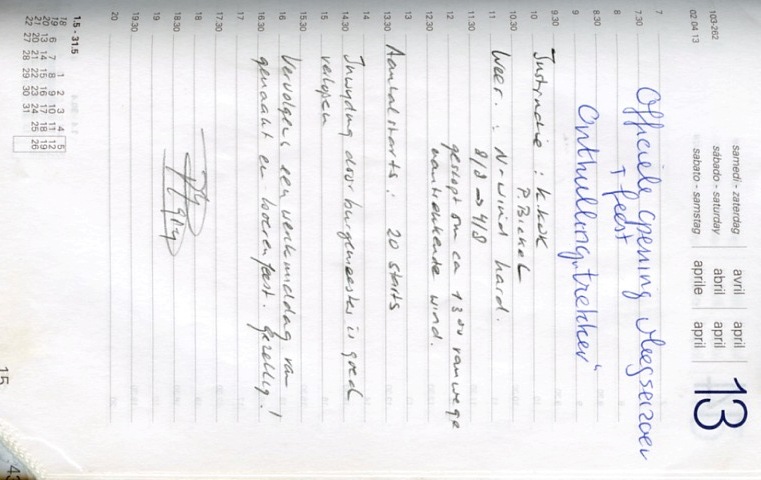 samedi - zaterdag avril april
sábado - saturday abril april
sabato - samstag aprile april
13
103-262
02 04 13
7
Officiële opening vliegseizoen
7.30
+ feest
8
8.30
Onthulling "trekker"
9
9.30
Instructie : K. Kok
10
P. Bickel
10.30
Weer : N-wind hard.
11
8/8 → 4/8
11.30
gestopt om ca 13 00 vanwege
12
aantrekkende wind.
12.30
13
Aantal starts : 20 starts
13.30
14
Inwijding door burgemeester is goed
14.30
verlopen
15
15.30
Vervolgens een werkmiddag van
16
gemaakt en boerenfeest. Gezellig!
16.30
17
17.30
18
18.30
19
19.30
20
1.5 - 31.5
18 1 2 3 4 5
19 6 7 8 9 10 11 12
20 13 14 15 16 17 18 19
21 20 21 22 23 24 25 26
22 27 28 29 30 31
15